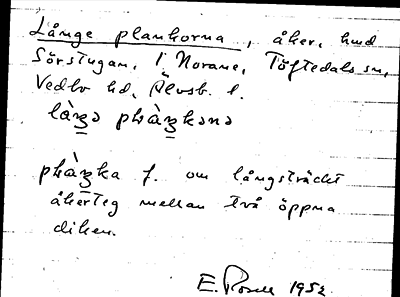 Långe plankorna, åker, hmd
Sörstugan, 1 Norane, Töftedals sn,
Vedbo hd, Älvsb. l.
là̠ŋə phà̠ŋkənə
phàŋka f. om långsträckt
åkerteg mellan två öppna
diken.
E. 1952